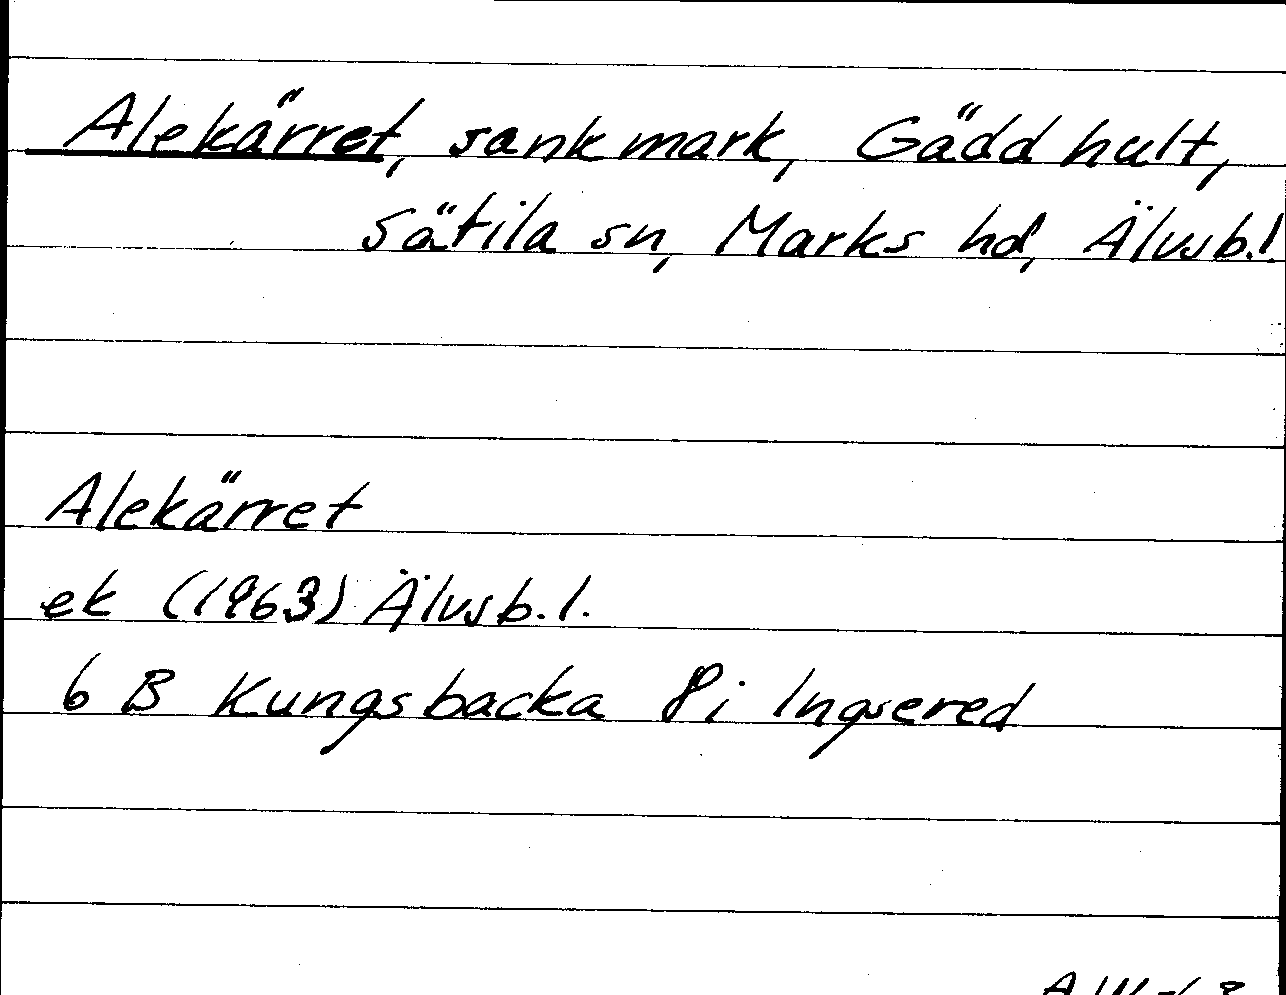 Alekärret, sankmark, Gäddhult,
Sätila sn, Marks hd, Älvsb.l.
Alekärret
ek (1963) Älvsb.l.
6 B Kungsbacka 8i Ingsered